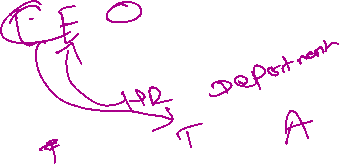 CEO
HR Department
T A